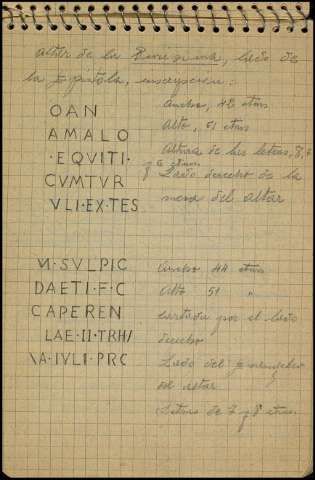 altar de la Purísima, lado de
la Epístola, inscripción:
OAN
AMALO
·EQVITI·
CVMTVR
VLI·EX·TES
Ancho, 42 ctms
Alto, 51 ctms
Altura de las letras, 7, 6
y 6 ctms.
Lado derecho de la
mesa del altar
VI·SVLPIC
DAETI·F·C
CAPEREN
LAE·II·TRH/
\A·IVLI·PRC
Ancho 44 ctms
Alto 51 "
cortada por el lado
derecho
Lado del Evangelio
del altar
Letras de 7 y 8 ctms.